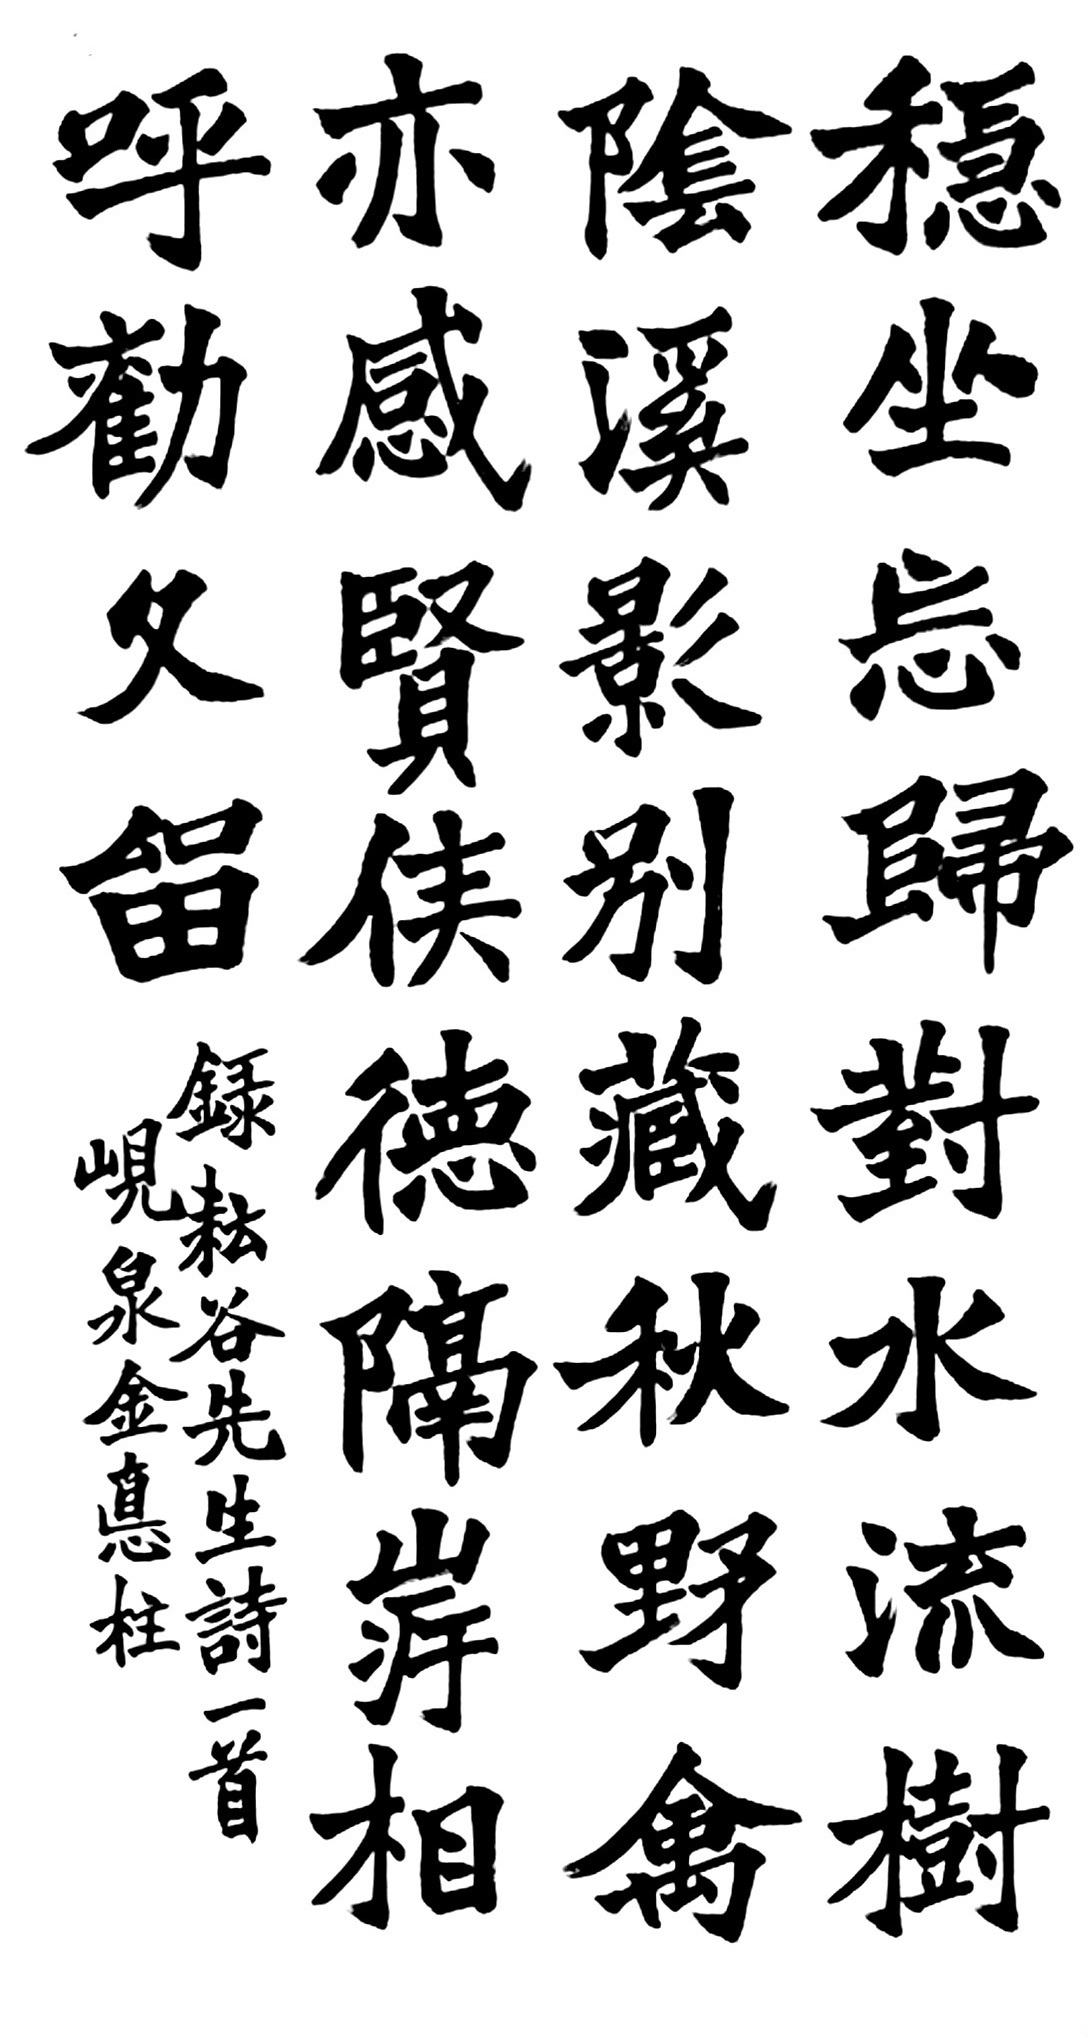 穩坐忘歸對水流樹
陰溪影別藏秋野禽
亦感賢侯德隔岸相
呼勸久留
錄耘谷先生詩一首
峴泉金悳柱